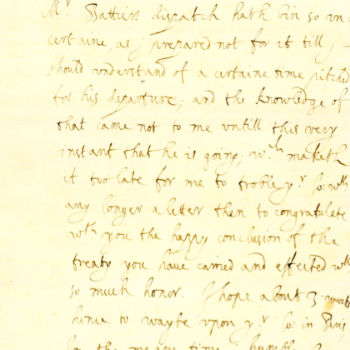 Mr. Battiers dispatch hath bin so un
certaine as j prepared not for it till j
should understand of a certaine time pitched
for his departure; and the knowledge of
that came not to me untill this very
instant that he is going; wch. maketh
it too late for me to troble yr. lo: wth
any longer a letter then to congratulate
wth you the happy conclusion of the
treaty you have carried and effected wth
so much honor. I hope about 3 weeks
hence to wayte upon yr. lo: in Paris
In the meane time humbly